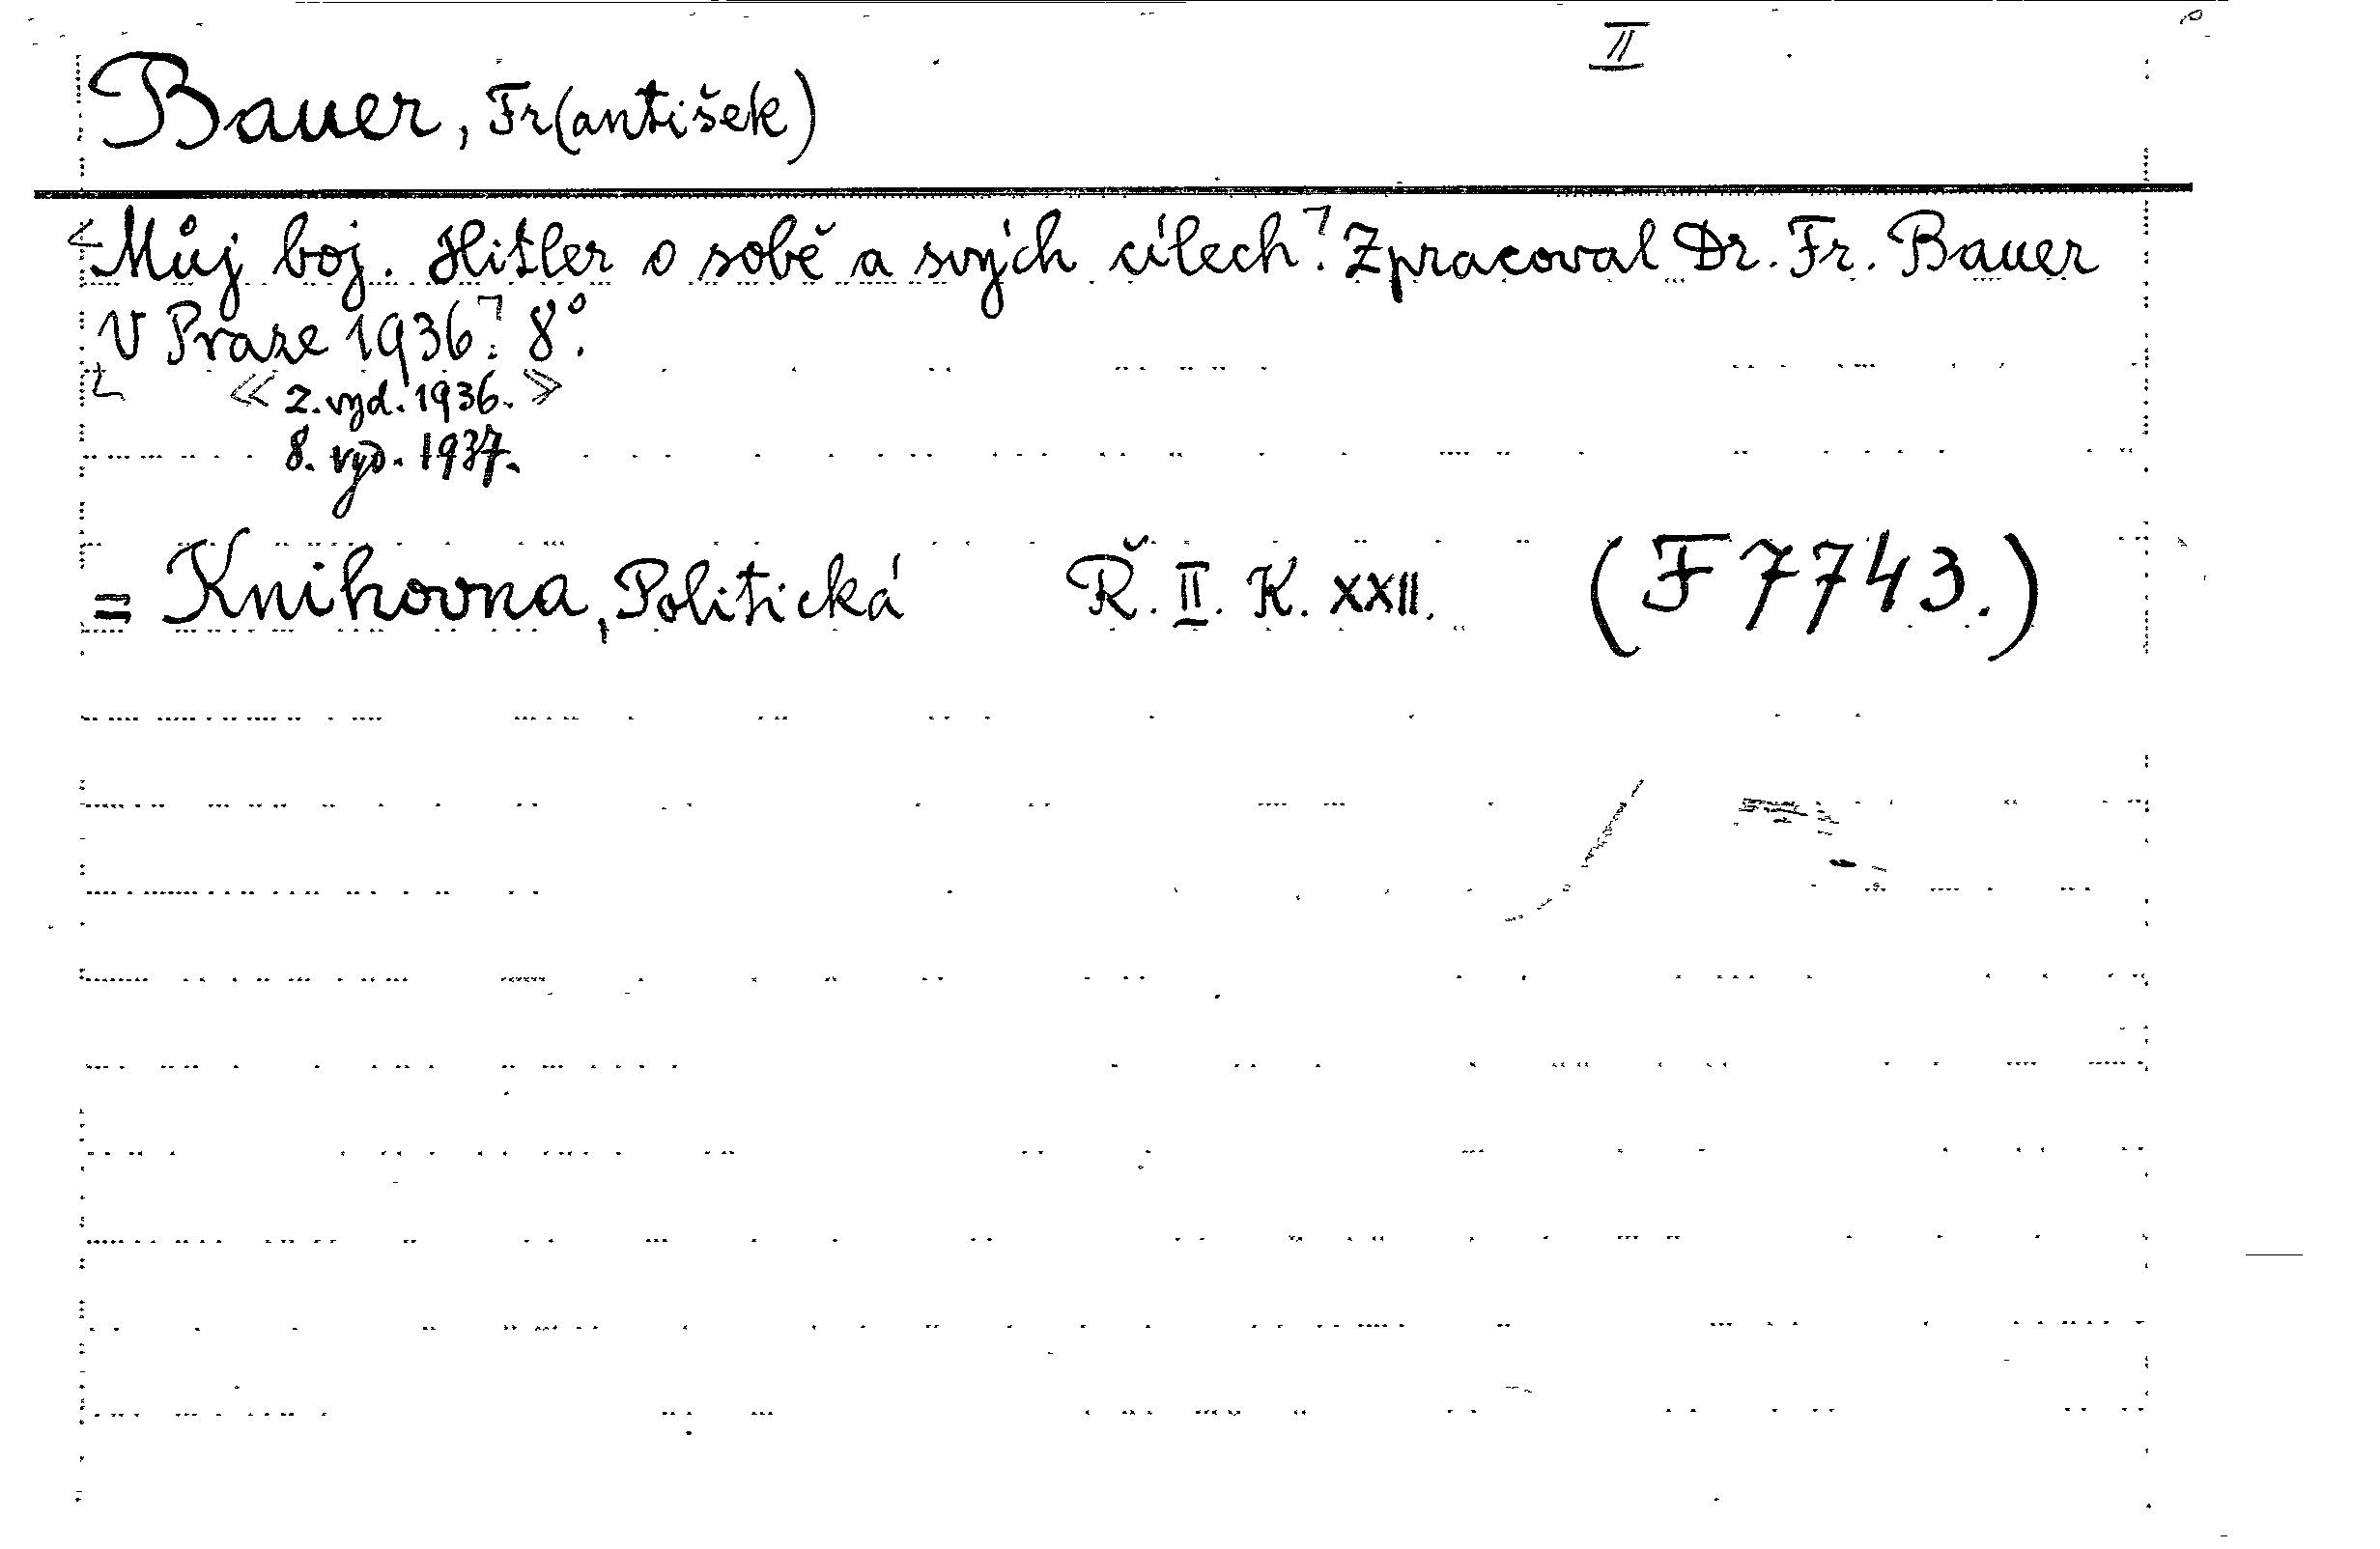 II
Bauer, Fr(antišek)
Můj boj. Hitler o sobě a svých cílech. Zpracoval Dr. Fr. Bauer
V Praze 1936. 8°.
« 2. vyd. 1936. »
8. vyd. 1937.
= Knihovna, Politická Ř. II. K. XXII. (F 7743.)